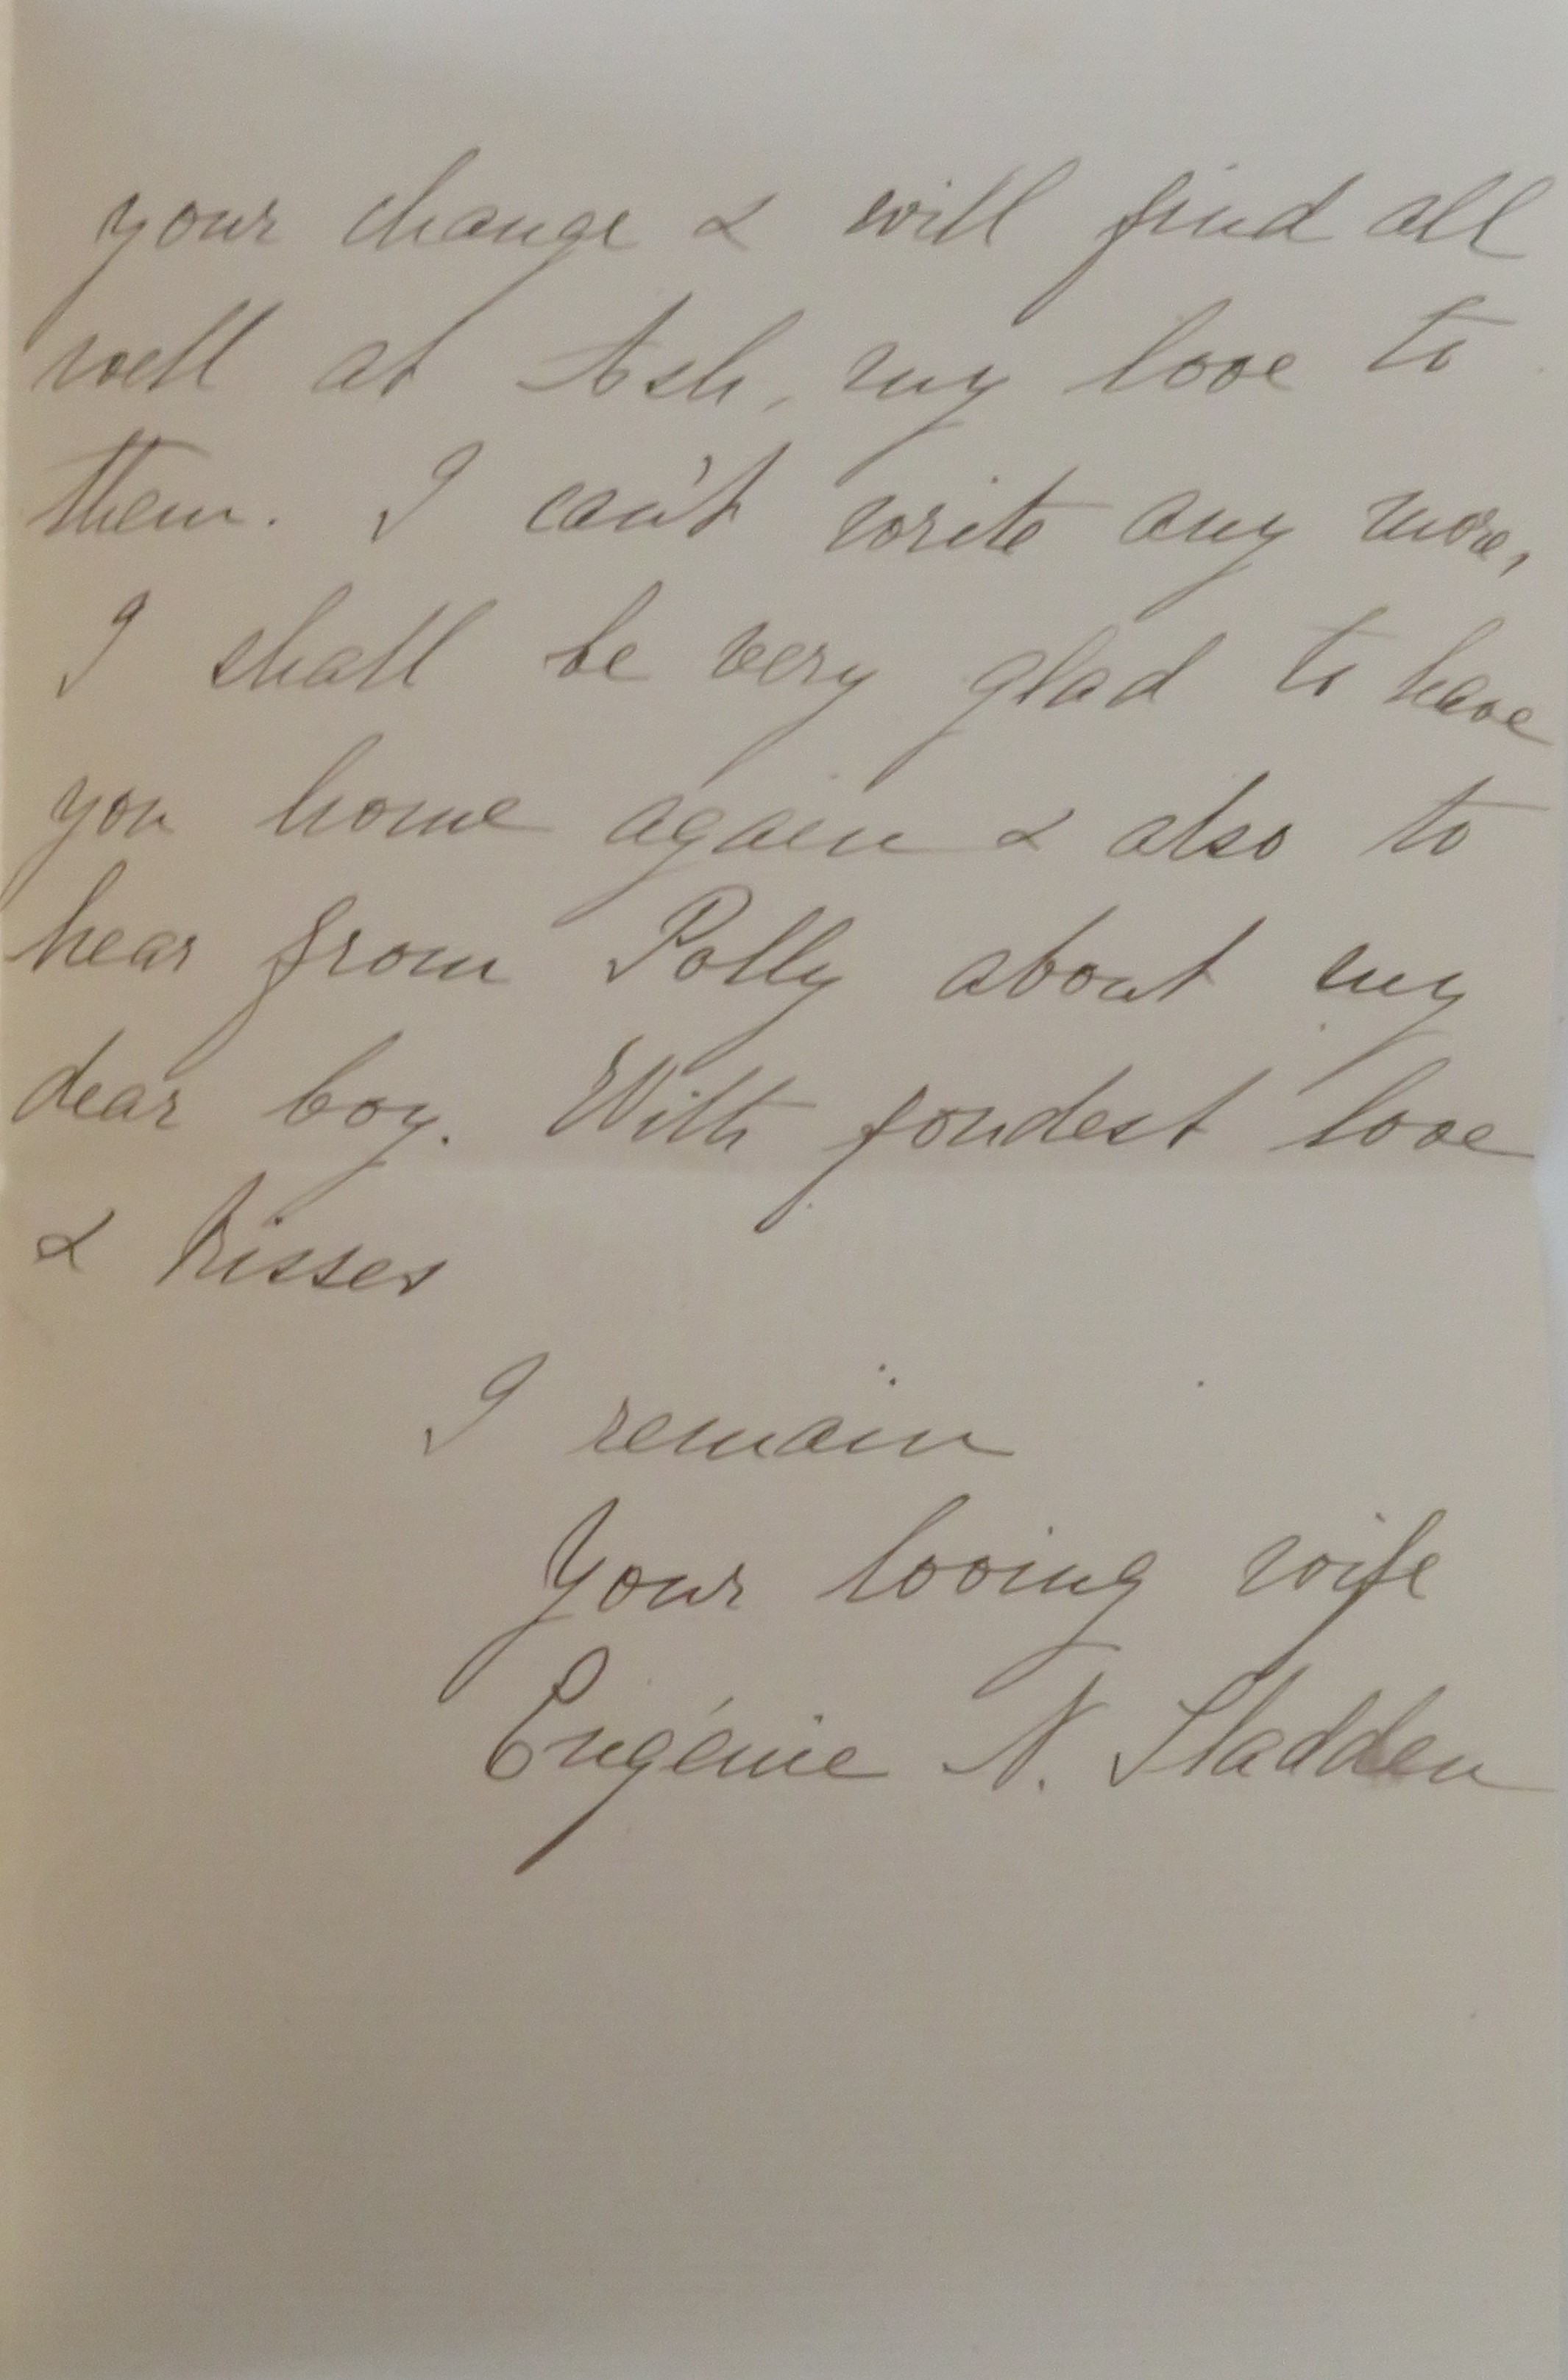 your change & will find all
well at Ash, my love to
them. I can't write any more,
I shall be very glad to have
you home again & also to
hear from Polly about my
dear boy. With fondest love
& kisses
I remain
Your loving wife
Eugénie N. Sladden